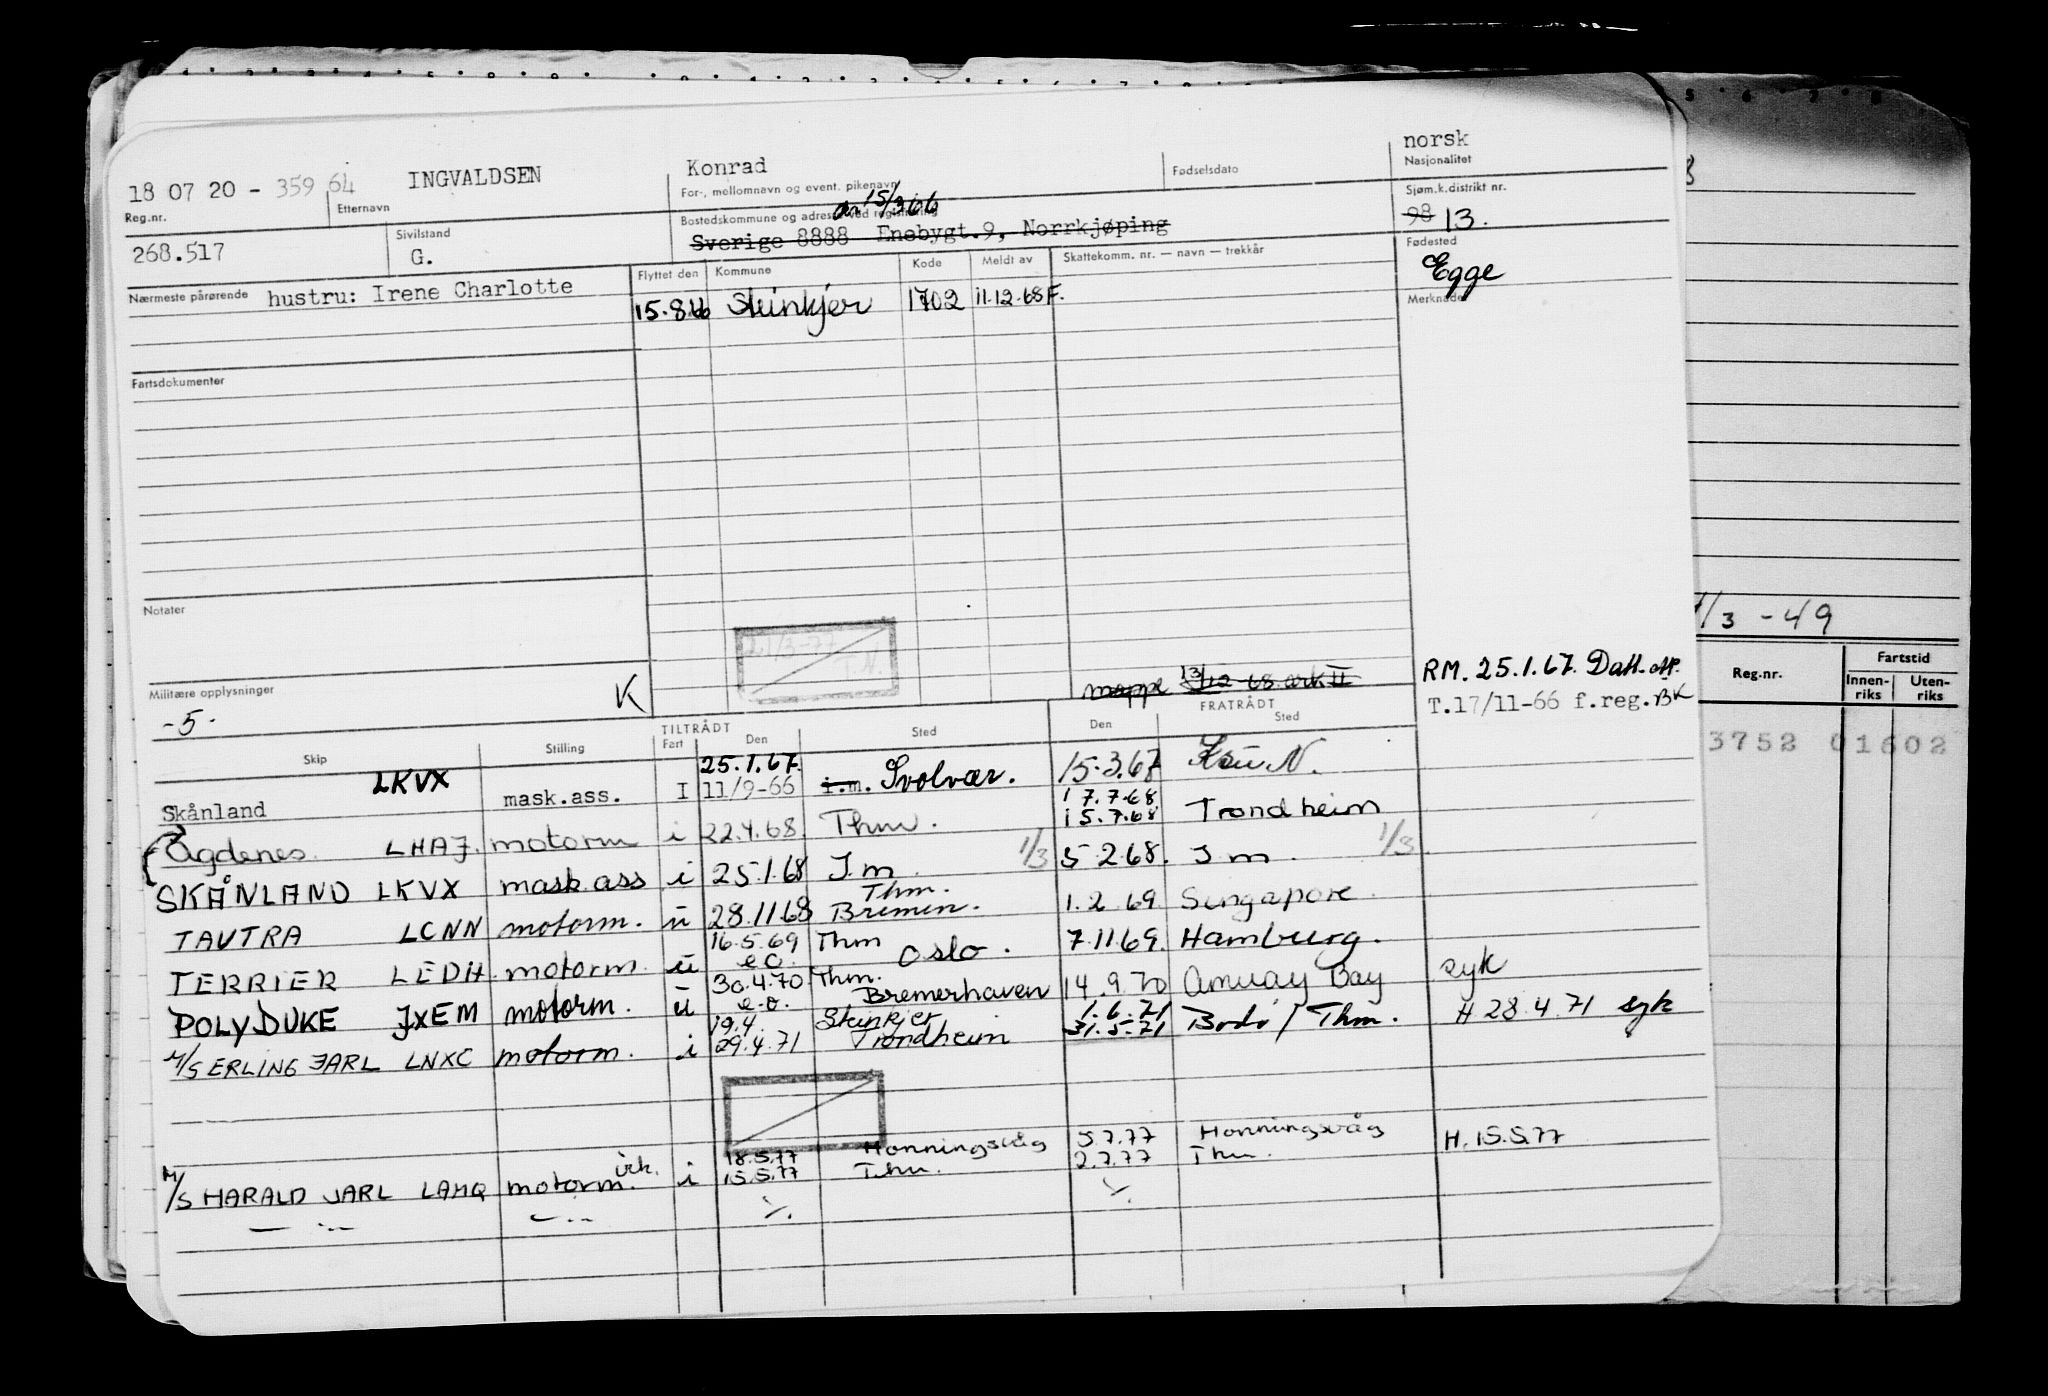 norsk
18 07 20 - 359 64 INGVALDSEN Konrad Fødselsdato Nasjonalitet
Reg.nr. Etternavn For-, mellomnavn og event. pikenavn Sjøm.k.distrikt nr.
Bostedskommune og adresse ved registrering 15/3 66 98 13.
268.517 Sivilstand G. Sverige 8888 Enebygt.9, Norrkjøping Fødested
Egge
Nærmeste pårørende hustru: Irene Charlotte Flyttet den Kommune Kode Meldt av Skattekomm. nr. — navn — trekkår
Merknader
15.8.66 Steinkjer 1702 11.12.68 F.
Fartsdokumenter
Notater
21/3-77
T.N.
1/3 - 49
Reg.nr. Fartstid
Innen- riks Uten- riks
3752 01602
Militære opplysninger K mappe 13/12-68 ark II RM. 25.1.67.
-5- T.17/11-66 f.reg. BK
TILTRÅDT FRATRÅDT
Skip Stilling Fart Den Sted Den Sted
Skånland LKVX mask.ass. I 25.1.67. 11/9-66 i.m. Svolvær. 15.3.67 N.
Agdenes LHAJ. motorm i 22.4.68. Thm. 17.7.68 15.7.68 Trondheim
SKÅNLAND LKVX mask.ass i 25.1.68 I.m 1/3 5.2.68. I.m. 1/3
TAUTRA LCNN motorm. u 28.11.68 Thm. Bremen. 1.2.69 Singapore.
TERRIER LEDH. motorm. u 16.5.69 e.o. Thm Oslo. 7.11.69. Hamburg.
POLYDUKE JXEM motorm. u 30.4.70 e.o. Thm. Bremerhaven 14.9.70 Amuay Bay syk
M/S ERLING JARL LNXC motorm. i 19.4. 29.4.71 Steinkjer Trondheim 1.6.71 31.5.71 Bodø / Thm. H 28.4.71 syk
M/S HARALD JARL LAHQ motorm. i 18.5.77 15.5.77 Honningsvåg Thm. 5.7.77 2.7.77 Honningsvåg Thm. H. 15.5.77